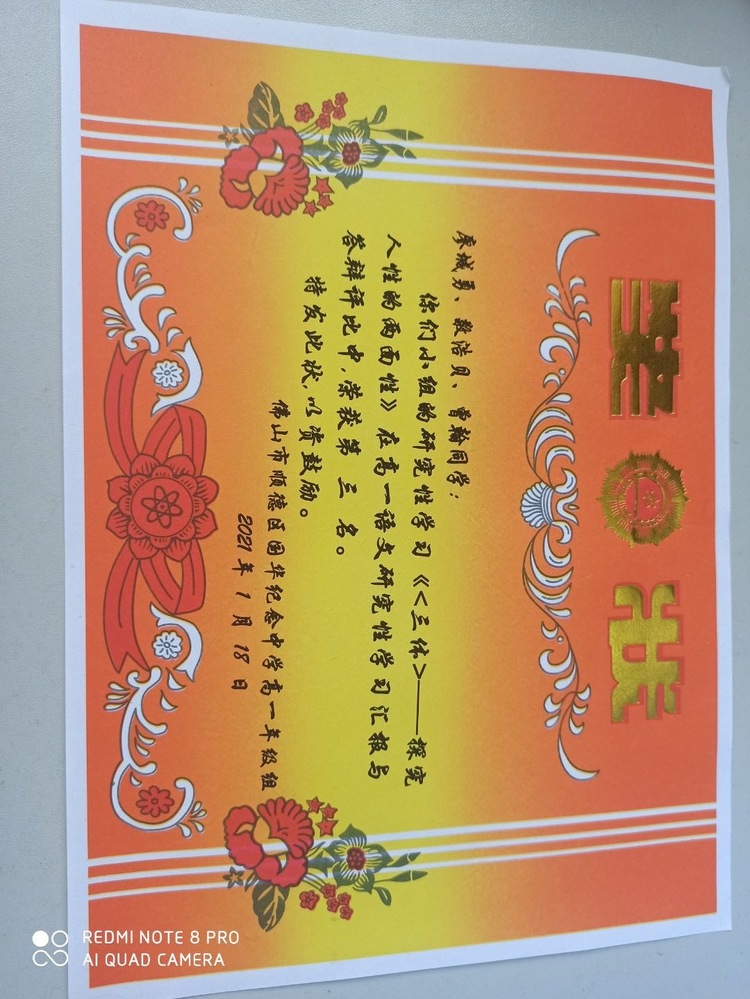 奖状
康城勇、敖浩贝、曾翰同学：
你们小组的研究性学习《<三体>——探究
人性的两面性》在高一语文研究性学习汇报与
答辩评比中，荣获第 三 名。
特发此状，以资鼓励。
佛山市顺德区国华纪念中学高一年级组
2021 年 1 月 18 日
REDMI NOTE 8 PRO
AI QUAD CAMERA